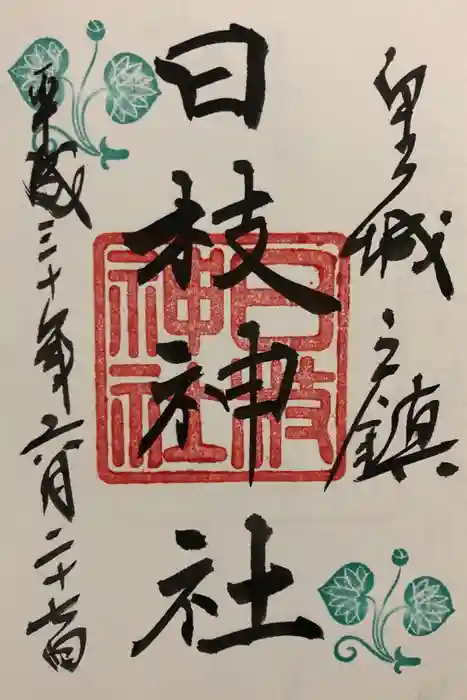 皇城之鎮
日枝神社
日枝神社
平成三十年六月二十七日